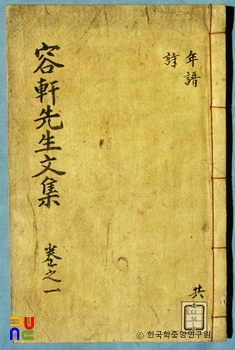 年譜
詩
容軒先生文集
卷之一
共
© 한국학중앙연구원